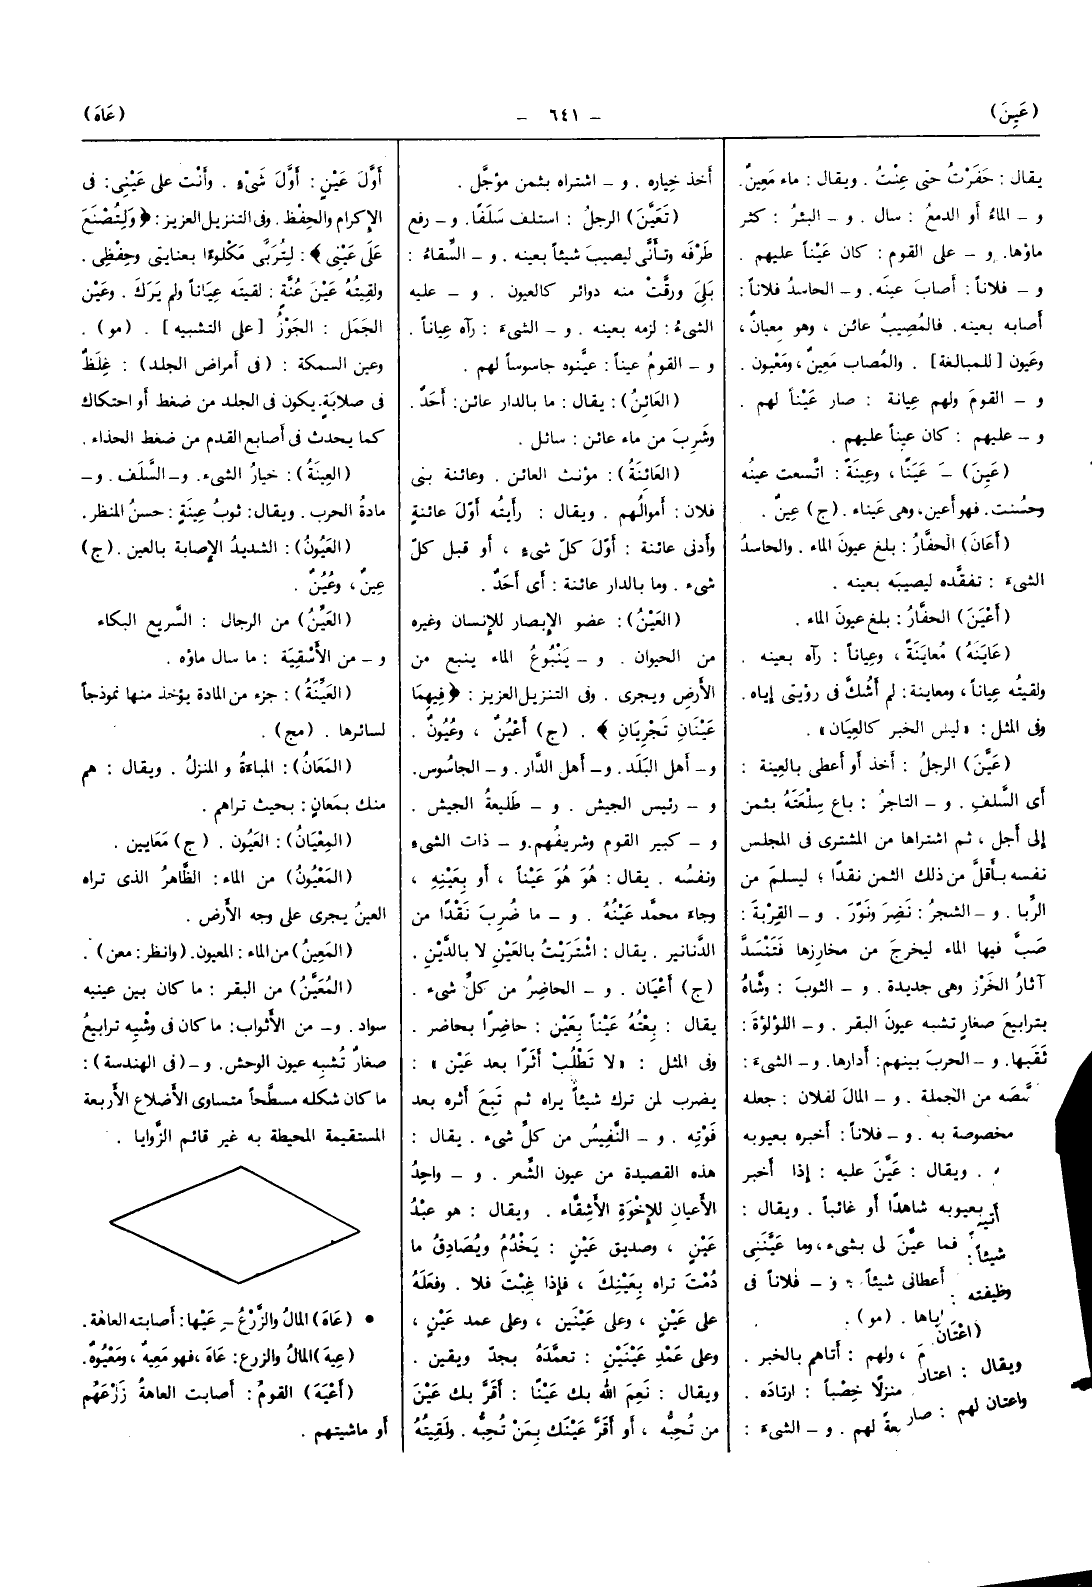 (عَيِنَ)
- ٦٤١ -
(عَاهَ)
يقال : حَفَرْتُ حتى عِنْتُ . ويقال : ماء مَعِينٌ .
و – الماءُ أو الدمعُ : سال . و – البئرُ : كثر
ماؤها . و – على القوم : كان عَيْناً عليهم .
و – فلاناً : أصاب عينَه . و – الحاسدُ فلاناً :
أصابه بعينه . فالمُصِيبُ عائن ، وهو مِعيانٌ ،
وعَيون [ للمبالغة ] . والمُصاب مَعِينٌ ، ومَعْيون .
و – القومَ ولهم عِيانة : صار عَيْناً لهم .
و – عليهم : كان عيناً عليهم .
(عَيِنَ) – عَيَنًا ، وعِينَةً : اتَّسعت عينُه
وحسُنت . فهو أعين ، وهى عَيناء . (ج) عِينٌ .
(أعَانَ) الحفَّارُ : بلغ عيونَ الماء . والحاسدُ
الشىءَ : تفقَّده ليصيبَه بعينه .
(أعْيَنَ) الحفَّارُ : بلغ عيونَ الماء .
(عَايَنَهُ) مُعاينَةً ، وعِياناً : رآه بعينه .
ولقيتُه عِياناً ، ومعاينة : لم أشُكَّ فى رؤيتى إياه .
وفى المثل : «ليس الخبر كالعِيَان» .
(عَيَّنَ) الرجلُ : أخذ أو أعطى بالعِينة :
أى السَّلفِ . و – التاجرُ : باع سِلْعَتَهُ بثمن
إلى أجل ، ثم اشتراها من المشترى فى المجلس
نفسه بأقلَّ من ذلك الثمن نقدًا ؛ ليسلمَ من
الرِّبا . و – الشجرُ : نَضِرَ ونَوَّرَ . و – القِرْبةَ :
صَبَّ فيها الماء ليخرجَ من مخارزها فَتَنْسَدَّ
آثارُ الخَرْزِ وهى جديدة . و – الثوبَ : وشَّاهُ
بترابيعَ صغارٍ تشبه عيونَ البقر . و – اللؤلؤةَ :
ثَقَبَها . و – الحربَ بينهم : أدارها . و – الشىءَ :
صَّصَه من الجملة . و – المالَ لفلان : جعله
مخصوصة به . و – فلاناً : أخبره بعيوبه
. ويقال : عَيَّنَ عليه : إذا أخبر
بعيوبه شاهدًا أو غائباً . ويقال :
فما عيَّنَ لى بشىء ، وما عَيَّنَنِى شيئاً :
أعطانى شيئاً ؛ و – فلاناً فى وظيفته :
ياها . (مو) .
(اعْتَانَ ، ولهم : أتاهم بالخبر .
ويقال : اعتان منزلًا خِصْباً : ارتادَه .
واعتان لهم : صار عةً لهم . و – الشىءَ :
أخذ خِياره . و – اشتراه بثمن مؤجَّل .
(تَعَيَّنَ) الرجلُ : استلف سَلَفًا . و – رفع
طَرْفَه وتأنَّى ليصيبَ شيئاً بعينه . و – السِّقاءُ :
بَلِىَ ورقَّتْ منه دوائر كالعيون . و – عليه
الشىءُ : لزمه بعينه . و – الشىءَ : رآه عِياناً .
و – القومُ عيناً : عيَّنوه جاسوساً لهم .
(العَائِنُ) : يقال : ما بالدار عائن : أحَدٌ .
وشَرِبَ من ماء عائن : سائل .
(العَائِنَةُ) : مؤنث العائن . وعائنة بنى
فلان : أموالُهم . ويقال : رأيتُه أوّلَ عائنةٍ
وأدنى عائنة : أوّلَ كلّ شىءٍ ، أو قبل كلّ
شىء . وما بالدار عائنة : أى أحَدٌ .
(العَيْنُ) : عضو الإبصار للإنسان وغيره
من الحيوان . و – يَنْبُوعُ الماء ينبع من
الأرضِ ويجرى . وفى التنزيل العزيز : ﴿ فِيهِمَا
عَيْنَانِ تَجْرِيَانِ ﴾ . (ج) أعْيُنٌ ، وعُيُونٌ .
و – أهل البَلَد . و – أهل الدَّار . و – الجاسُوس .
و – رئيس الجيش . و – طَلِيعةُ الجيش .
و – كبير القوم وشريفُهم . و – ذات الشىء
ونفسُه . يقال : هُوَ هُوَ عَيْناً ، أو بِعَيْنِهِ ،
وجاءَ محمَّد عَيْنُهُ . و – ما ضُرِبَ نَقْدًا من
الدَّنانير . يقال : اشْتَرَيْتُ بالعَيْنِ لا بالدَّيْنِ .
(ج) أعْيَان . و – الحاضِرُ من كلِّ شىء .
يقال : بِعْتُهُ عَيْناً بعَيْن : حاضِرًا بحاضر .
وفى المثل : «لا تَطْلُبْ أثَرًا بعد عَيْنٍ» :
يضرب لمن ترك شيئاً يراه ثم تَبِعَ أثره بعد
فَوْتِه . و – النَّفِيسُ من كلِّ شىء . يقال :
هذه القصيدة من عيون الشِّعر . و – واحِدُ
الأعيان للإخْوَةِ الأشِقَّاء . ويقال : هو عبْدُ
عَيْنٍ ، وصديق عَيْنٍ : يَخْدُمُ ويُصَادِقُ ما
دُمْتَ تراه بعَيْنِكَ ، فإذا غِبْتَ فلا . وفعَلَهُ
على عَيْنٍ ، وعلى عَيْنَين ، وعلى عمد عَيْنٍ ،
وعلى عَمْدِ عَيْنَيْنِ : تعمَّدَهُ بجِدّ ويقين .
ويقال : نَعِمَ الله بك عَيْنًا : أقرَّ بك عَيْنَ
من تُحِبُّه ، أو أقرَّ عَيْنَكَ بِمَنْ تُحِبُّه . ولَقِيتُهُ
أوَّلَ عَيْنٍ : أوَّلَ شَىْءٍ . وأنْت على عَيْنِى : فى
الإكرام والحِفْظ . وفى التنزيل العزيز : ﴿ وَلِتُصْنَعَ
عَلَى عَيْنِى ﴾ : لِتُرَبَّى مَكْلوءًا بعنايتى وحِفْظِى .
ولقِيتُهُ عَيْنَ عُنَّةٍ : لقيته عِيَاناً ولم يَرَكَ . وعَيْن
الجَمَل : الجَوْزُ [ على التشبيه ] . (مو) .
وعين السمكة : (فى أمراض الجلد) : غِلَظٌ
فى صلابَةٍ يكون فى الجلد من ضغط أو احتكاك
كما يحدث فى أصابع القدم من ضغط الحذاء .
(العِينَةُ) : خيارُ الشىء . و – السَّلَف . و –
مادةُ الحرب . ويقال : ثوبُ عِينَةٍ : حسنُ المنظر .
(العَيُونُ) : الشديدُ الإصابة بالعين . (ج)
عِينٌ ، وعُيُنٌ .
(العَيِّنُ) من الرجال : السَّريع البكاء
و – من الأَسْقِيَة : ما سال ماؤه .
(العَيِّنَةُ) : جزء من المادة يؤخذ منها نموذجاً
لسائرها . (مج) .
(المَعَانُ) : المباءَةُ و المنزلُ . ويقال : هم
منك بمَعَانٍ : بحيث تراهم .
(المِعْيَانُ) : العَيُون . (ج) مَعَايين .
(المَعْيُونُ) من الماء : الظَّاهرُ الذى تراه
العينُ يجرى على وجه الأرض .
(المَعِينُ) من الماء : المعيون . (وانظر : معن) .
(المُعَيَّنُ) من البقر : ما كان بين عينيه
سواد . و – من الأثواب : ما كان فى وشْيِه ترابيعُ
صغارٌ تُشبه عيون الوحش . و – (فى الهندسة) :
ما كان شكله مسطَّحاً متساوى الأضلاع الأربعة
المستقيمة المحيطة به غير قائم الزَّوايا .
• (عَاهَ) المالُ والزَّرْعُ – عَيْها : أصابته العاهة .
(عِيهَ) المالُ والزرع : عَاهَ ، فهو مَعِيهٌ ، ومَعْيُوهٌ .
(أعْيَهَ) القومُ : أصابت العاهةُ زَرْعَهُم
أو ماشيتهم .